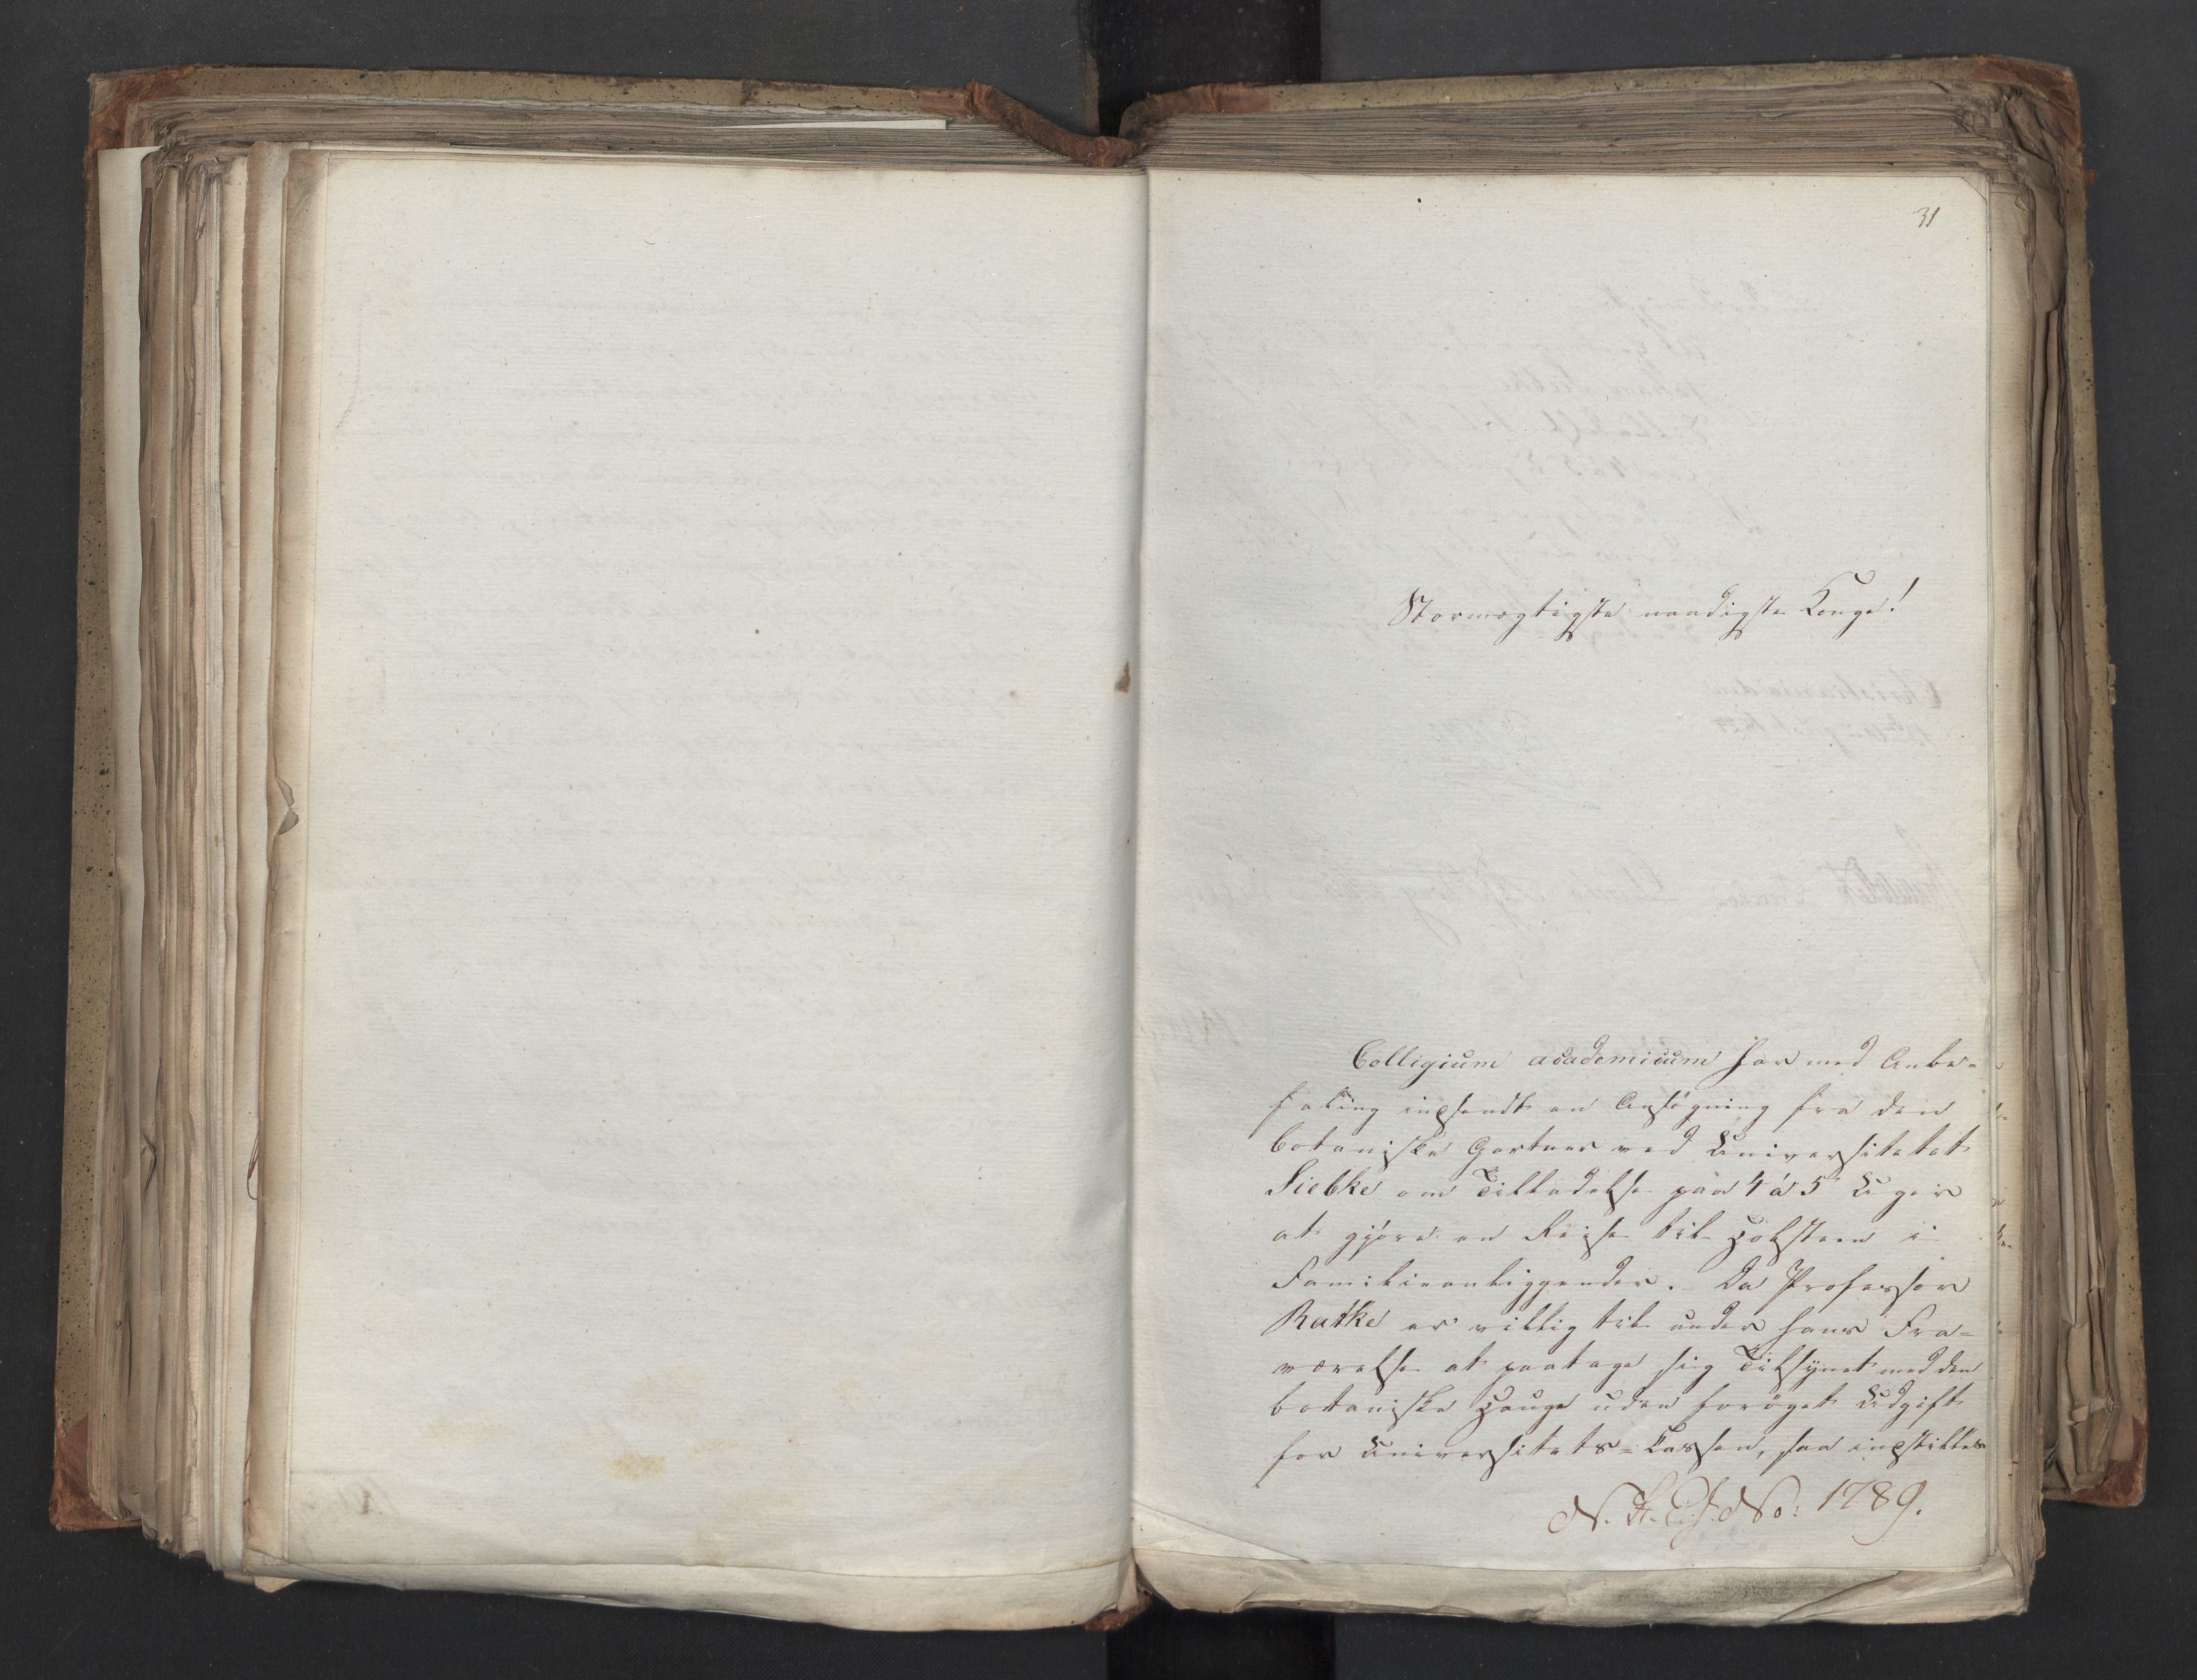 31
Stormægtigste naadigste Konge!
Collegium academicum har med Anbe-
faling indsendt en Ansøgning fra den
botaniske Gartner ved Universitetet
Siebke om Tilladelse paa 4 á 5 Uger
at gjøre en Reise til Holsteen i
Familieanliggender. Da Professor
Ratke er villig til under hans Fra-
værelse at paatage sig Tilsynet med den
botaniske Hauge uden forøget Udgift
for Universitets-Cassen, saa indstilles
No: 1789.